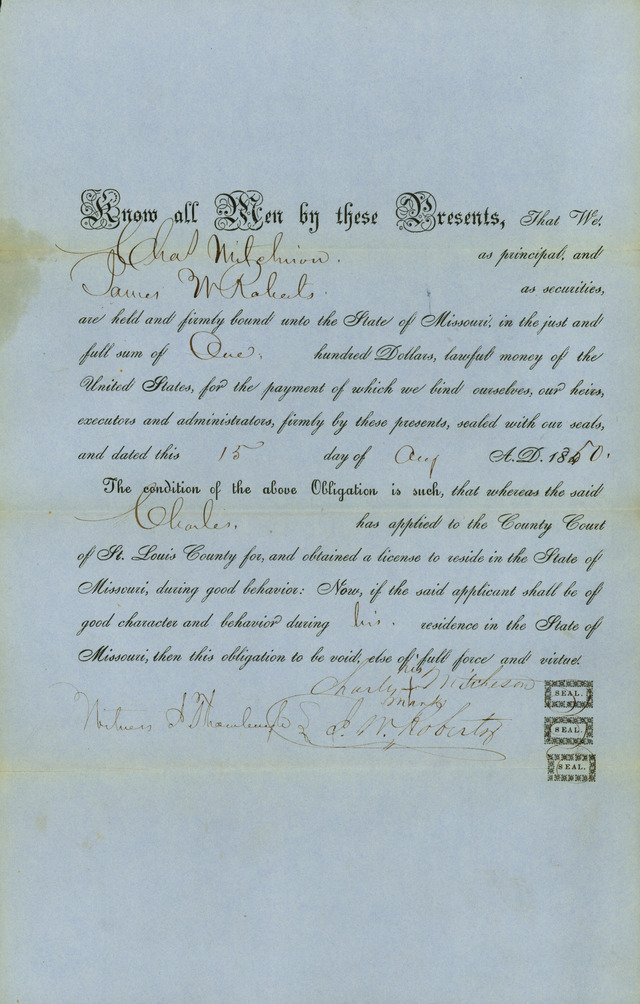 Know all Men by these Presents, That We,
Chas Mitchison. as principal, and
James W Roberts. as securities,
are held and firmly bound unto the State of Missouri, in the just and
full sum of One. hundred Dollars, lawful money of the
United States, for the payment of which we bind ourselves, our heirs,
executors and administrators, firmly by these presents, sealed with our seals,
and dated this 15 day of Aug A.D. 1850.
The condition of the above Obligation is such, that whereas the said
Charles. has applied to the County Court
of St. Louis County for, and obtained a license to reside in the State of
Missouri, during good behavior: Now, if the said applicant shall be of
good character and behavior during his. residence in the State of
Missouri, then this obligation to be void, else of full force and virtue.
his
Charly + Mitcheson SEAL.
mark
Witness J. W. Roberts SEAL.
SEAL.